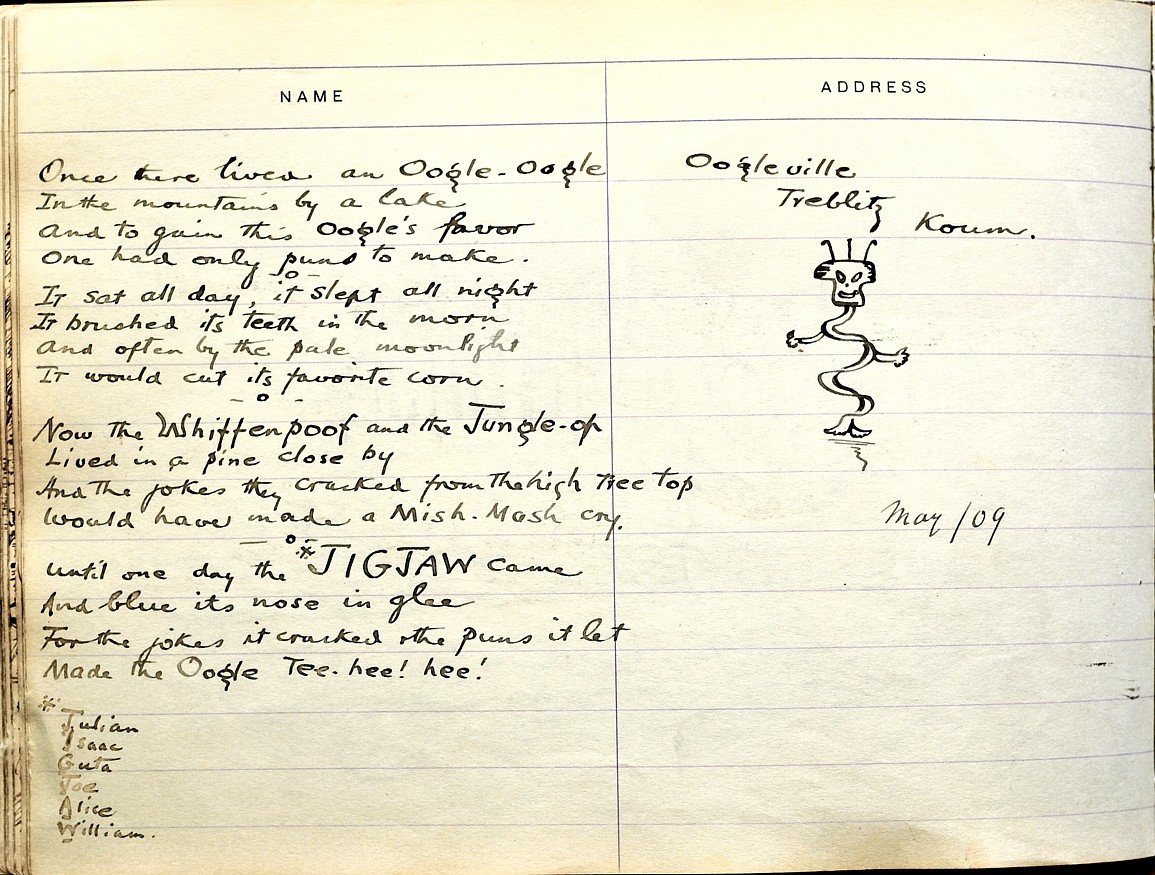 NAME
ADDRESS
Once there lived an Oogle-Oogle
In the mountains by a lake
And to gain this Oogle's favor
One had only puns to make.
-o-
It sat all day, it slept all night
It brushed its teeth in the morn
And often by the pale moonlight
It would cut its favorite corn.
-o-
Now the Whiffenpoof and the Jungle-op
Lived in a pine close by
And the jokes they cracked from the high tree top
Would have made a Mish-Mash cry.
-o-
Until one day the *JIGJAW came
And blue its nose in glee
For the jokes it cracked & the puns it let
Made the Oogle Tee-hee! hee!
*
Julian
Isaac
Guta
Joe
Alice
William.
Oogleville
Treblitz
Koum.
May /09